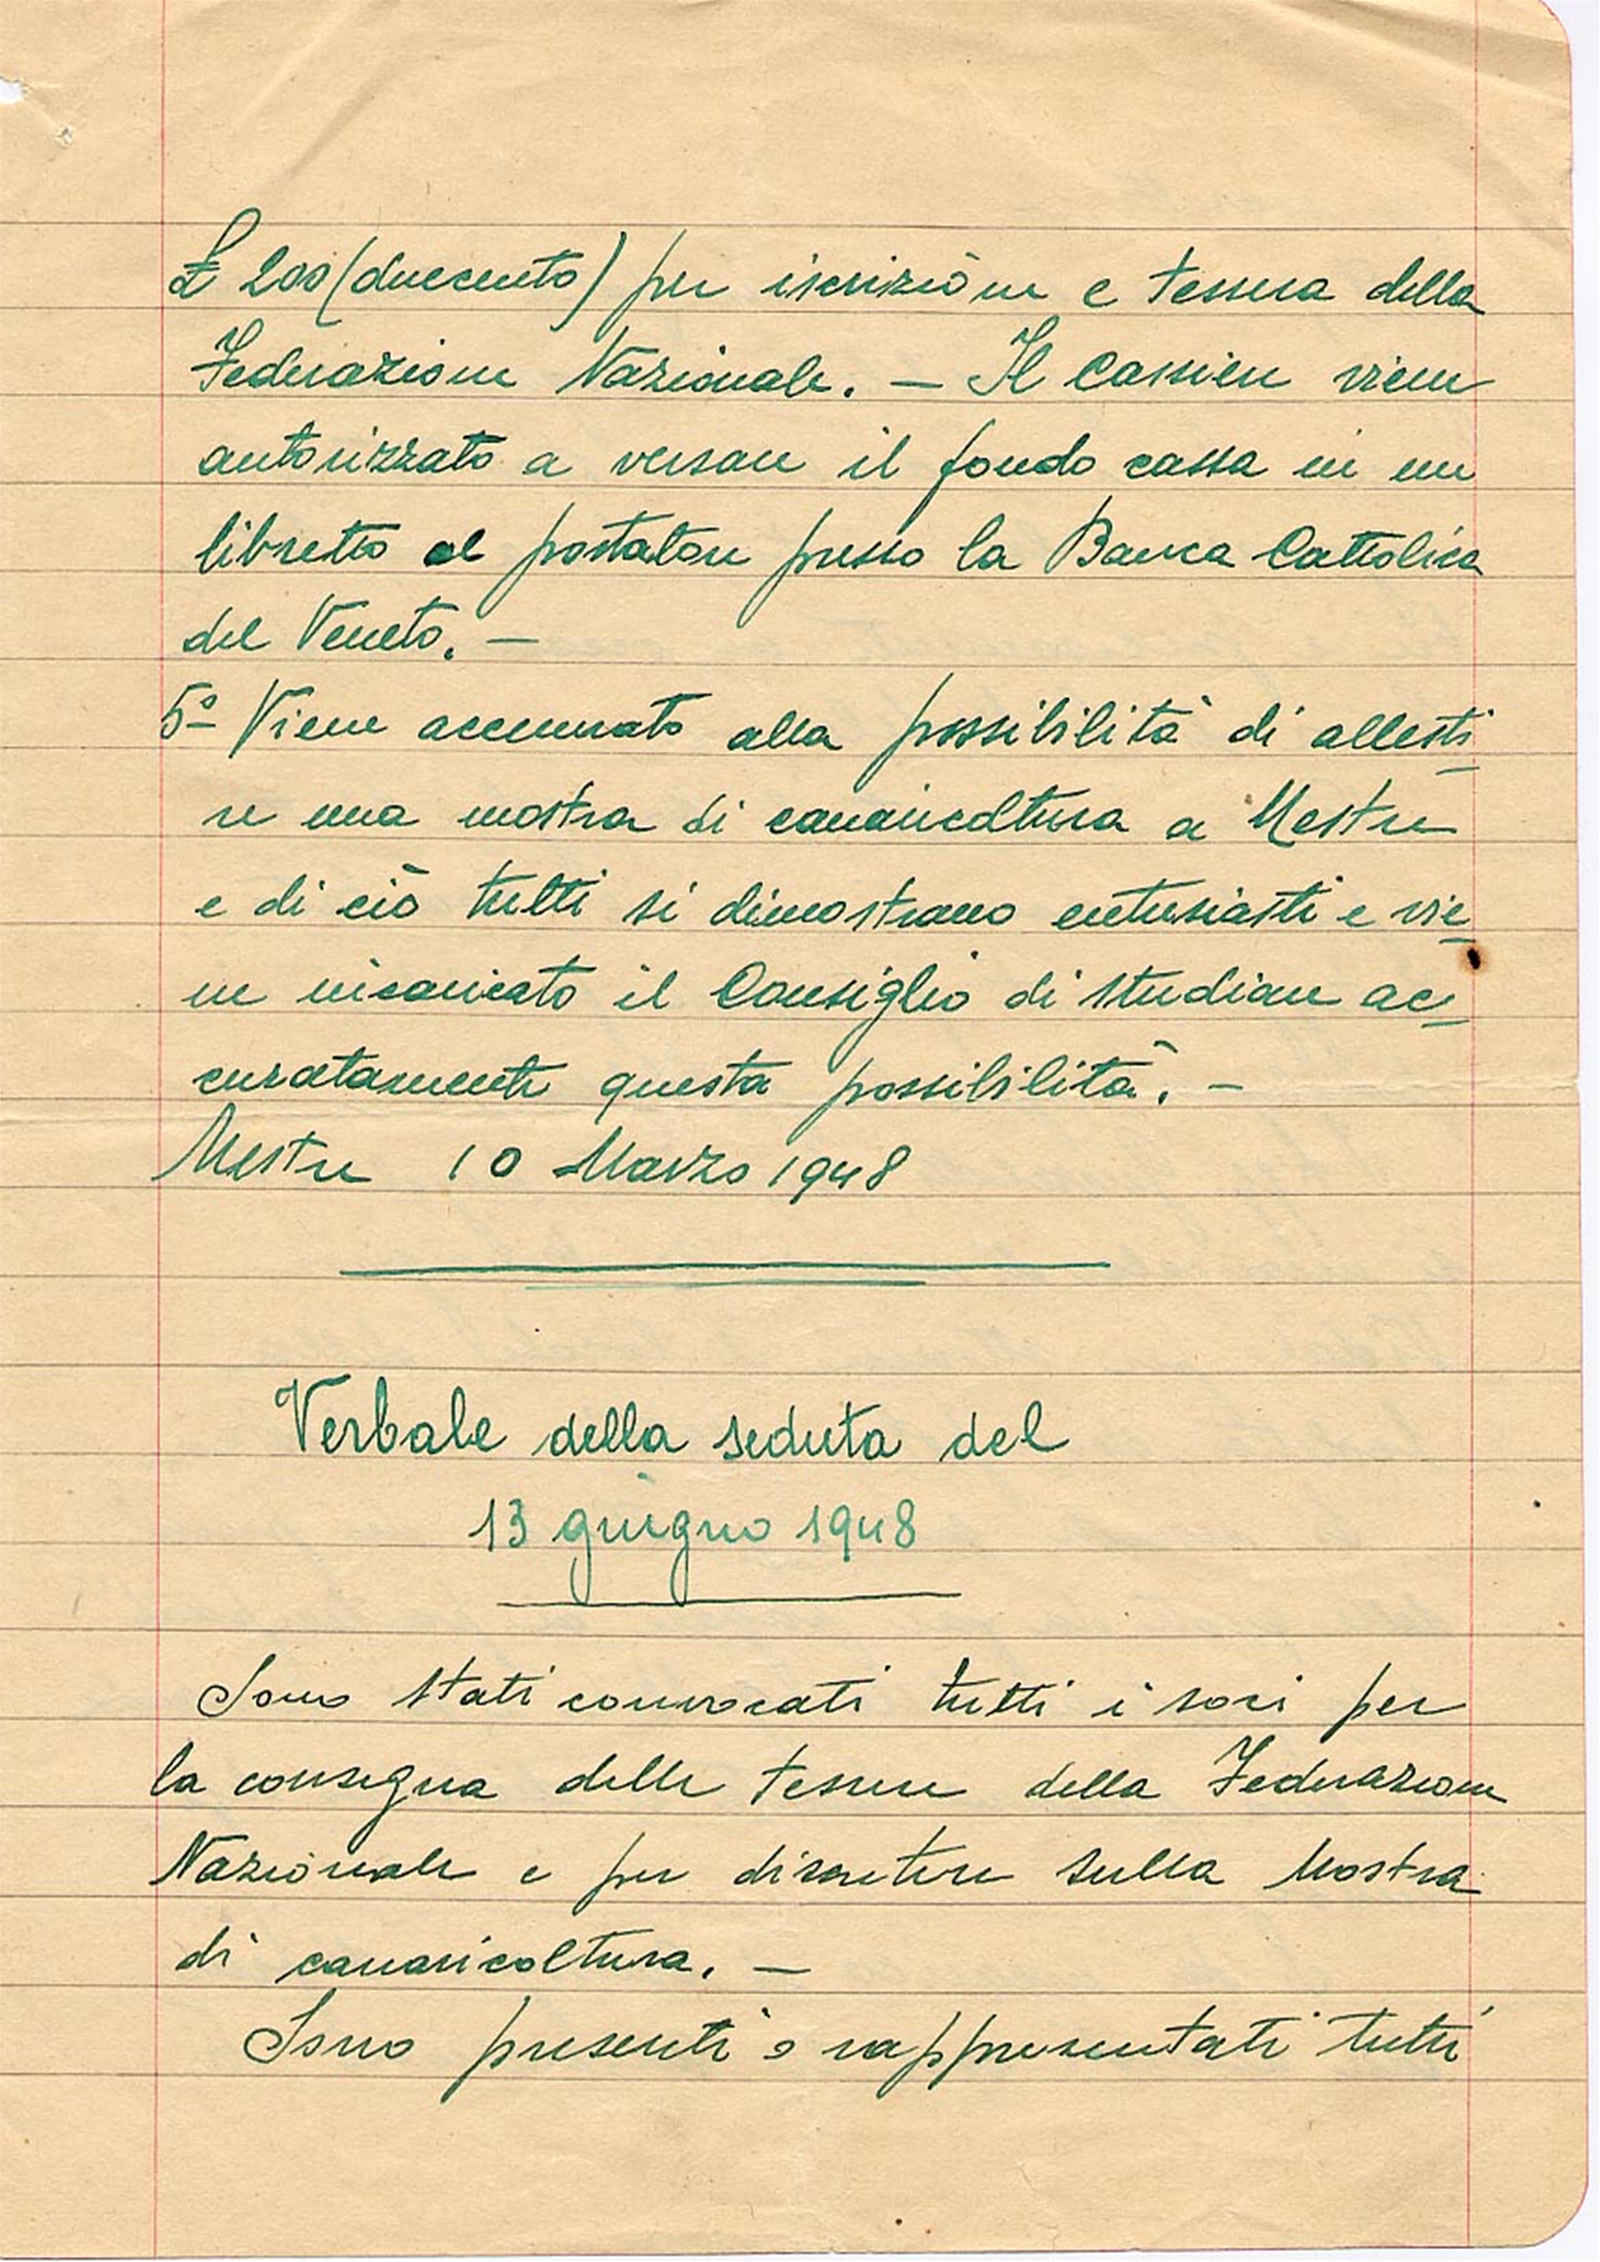 £ 200 (duecento) per iscrizione e tessera della
Federazione Nazionale. — Il Cassiere viene
autorizzato a versare il fondo cassa in un
libretto al portatore presso la Banca Cattolica
del Veneto. —
5º Viene accennato alla possibilità di allesti
re una mostra di canaricoltura a Mestre
e di ciò tutti si dimostrano entusiasti e vie
ne incaricato il Consiglio di studiare ac
curatamente questa possibilità. —
Mestre 10 Marzo 1948
Verbale della seduta del
13 giugno 1948
Sono stati convocati tutti i soci per
la consegna delle tessere della Federazione
Nazionale e per discutere sulla Mostra
di canaricoltura. —
Sono presenti o rappresentati tutti